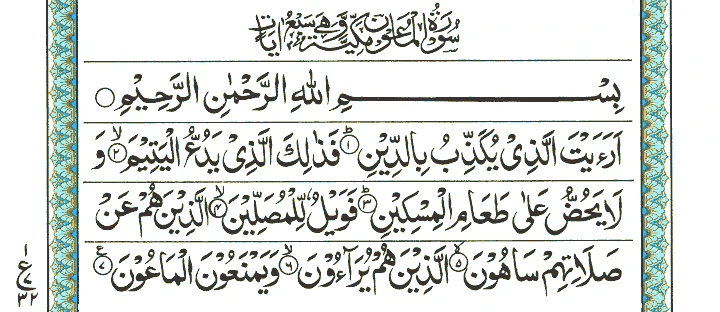 سُوْرَةُ الْمَاعُوْنِ مَكِّيَّةٌ وَّهِيَ سَبْعُ اٰيَاتٍ
بِسْمِ اللهِ الرَّحْمٰنِ الرَّحِيْمِ ○
اَرَءَيْتَ الَّذِىْ يُكَذِّبُ بِالدِّيْنِ ؕ۱ فَذٰلِكَ الَّذِىْ يَدُعُّ الْيَتِيْمَ ۙ۲ وَ
لَا يَحُضُّ عَلٰى طَعَامِ الْمِسْكِيْنِ ؕ۳ فَوَيْلٌ لِّلْمُصَلِّيْنَ ۙ۴ الَّذِيْنَ هُمْ عَنْ
صَلَاتِهِمْ سَاهُوْنَ ۙ۵ الَّذِيْنَ هُمْ يُرَآءُوْنَ ۙ۶ وَيَمْنَعُوْنَ الْمَاعُوْنَ ۧ۷
۱
ع
۷
۳۲